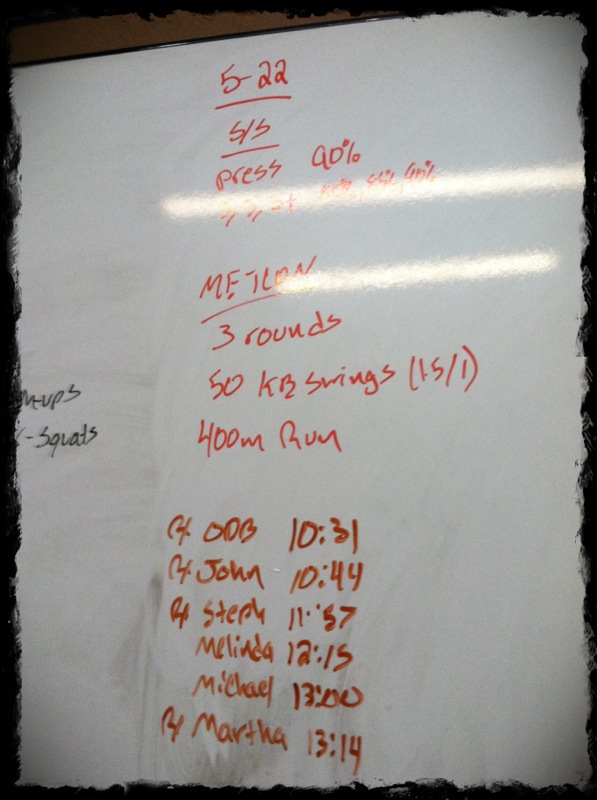 5-22
S/S
press 90%
METCON
3 rounds
50 KB swings (1.5/1)
400m Run
-Squats
Rx ODB 10:31
Rx John 10:44
Rx Steph 11:57
Melinda 12:15
Michael 13:00
Rx Martha 13:14